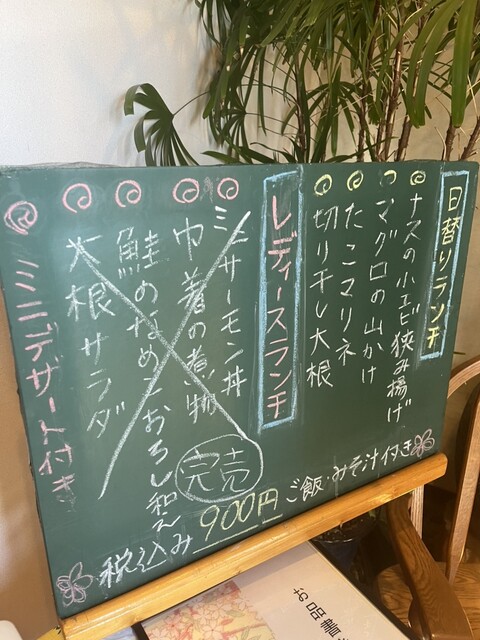 日替りランチ
ナスの小エビ狭み揚げ
マグロの山かけ
たこマリネ
切り干し大根
レディースランチ
ミニサーモン丼
巾着の煮物
鮭のなめこおろし和え
大根サラダ
ミニデザート付き
完売
税込み 900円 ご飯・みそ汁付き
お品書